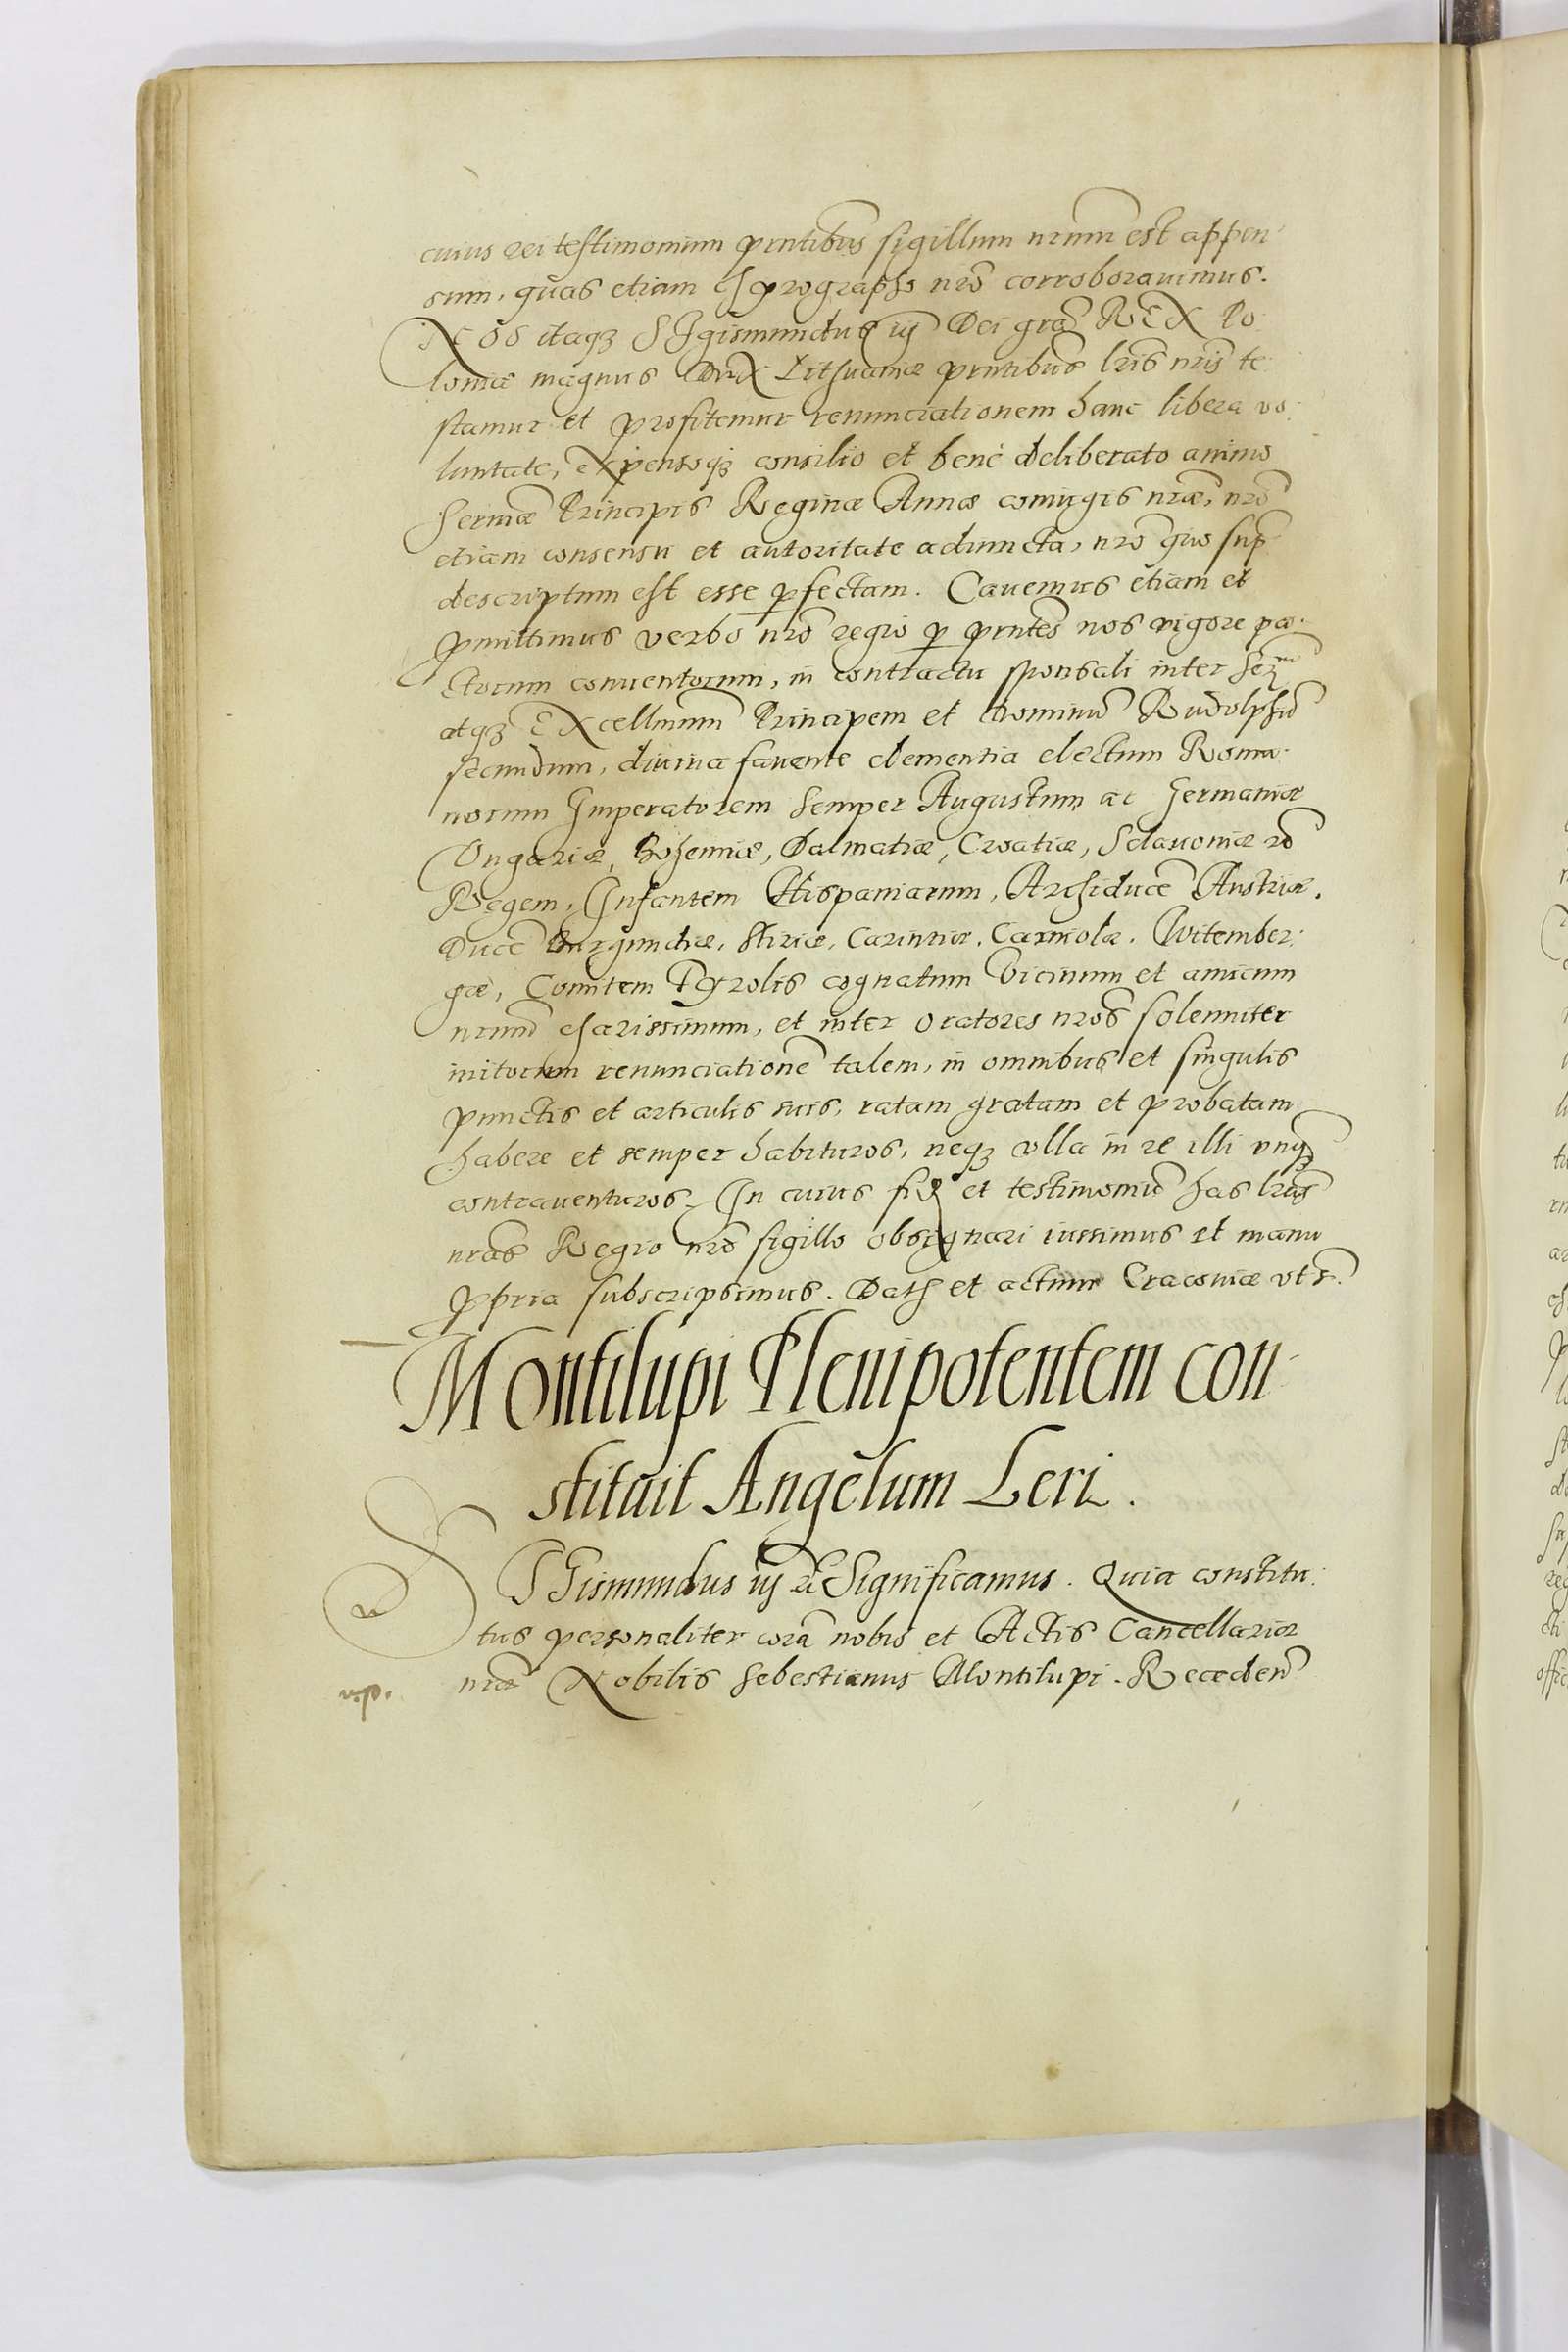 cuius rei testimonium prntibus sigillum nrum est appen
sum, quas etiam chyrographo nrō corroborauimus.
NOS itaqȝ SIgismundus iij Dei gra REX Po
loniæ magnus Dux Lithuaniæ prntibus lris nris te
stamur et profitemur renunciationem hanc libera vo
luntate, expensoqȝ consilio et bene deliberato animo
Sermæ Principis Reginæ Annæ coniugis nræ, nrō
etiam consensu et autoritate adiuncta, nrō quo sup
descriptum est esse pfectam. Cauemus etiam et
pmittimus verbo nrō regio p prntes nos vigore pa
ctorum conuentorum, in contractu sponsali inter Serm
atqȝ EXcellmum Principem et Dominū Rudolphū
secundum, diuina fauente clementia electum Roma
norum Imperatorem Semper Augustum ac Germaniæ
Vngariæ, Bohemiæ, Dalmatiæ, Croatiæ, Sclauoniæ rc
Regem, Infantem Hispaniarum, Archiducē Austriæ.
Ducē Burgundiæ, Stiriæ, Carintiæ, Carniolæ. Witember
gæ, Comitem Tyrolis cognatum vicinum et amicum
nrum charissimum, et inter oratores nros solemniter
initorum renunciationē talem, in omnibus et singulis
punctis et articulis suis, ratam gratam et probatam
habere et semper habituros, neqȝ vlla in re illi vnqȝ
contrauenturos. In cuius fid et testimoniū has lras
nras Regio nrō sigillo obsignari iussimus et manu
ppria subscripsimus. Dath et actum Cracouiæ vt s.
Montilupi Plenipotentem con
stituit Angelum Leri.
SIGismundus iij rc Significamus. Quia constitu
tus personaliter corā nobis et Actis Cancellariæ
nræ Nobilis Sebestianus Montilupi. Recedeń